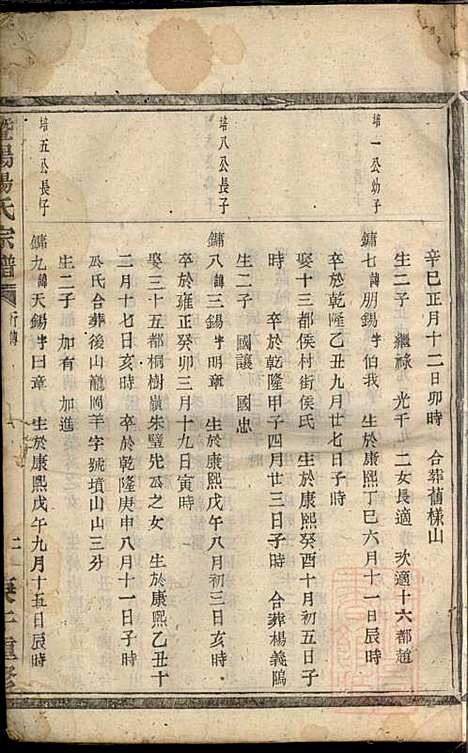 培一公幼子
辛巳正月十二日卯時 合葬舊樣山
生二子 繼祿 光千 二女長適 次適十六都趙
鏞七諱朋錫字伯我 生於康熙丁巳六月十一日辰時
卒於乾隆乙丑九月廿七日子時
娶十三都侯村街侯氏 生於康熙癸酉十月初五日子
時 卒於乾隆甲子四月廿三日子時 合葬楊義隖
生二子 國讓 國忠
培八公長子
鏞八諱三錫字明章 生於康熙戊午八月初三日亥時
卒於雍正癸卯三月十九日寅時
娶三十五都桐樹嶺朱璧先公之女 生於康熙乙丑十
二月十七日亥時 卒於乾隆庚申八月十一日子時
公氏合葬後山龍岡羊字號墳山山三分
生二子 加有 加進
培五公長子
鏞九諱天錫字日章 生於康熙戊午九月十五日辰時
暨陽楊氏宗譜 行傳 二